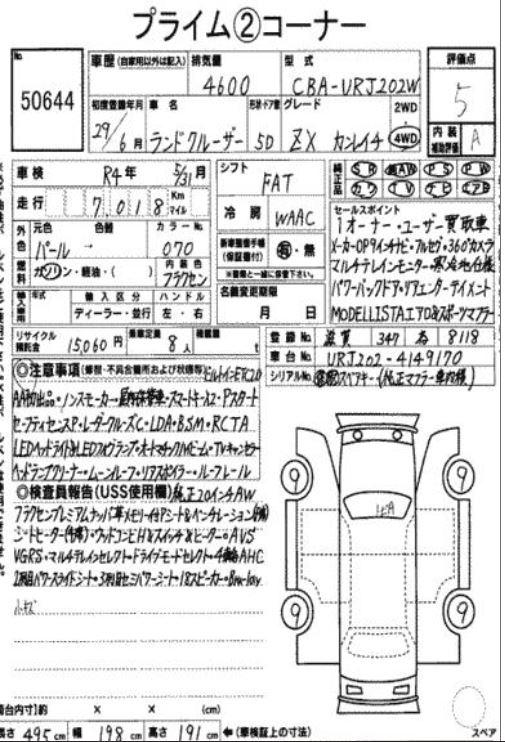 プライム②コーナー
No.
50644
車歴 (自家用以外は記入)
排気量
4600
型式
CBA-URJ202W
評価点
5
初度登録年月
29/6月
車名
ランドクルーザー
形状・ドア数
5D
グレード
ZX カンレイチ
2WD
4WD
内装補助評価
A
車検
R4年 5/31月
シフト
FAT
純正品
SR 純AW PS PW
カワ TV ナビ エアB
走行
7,018 Km マイル
冷房
WAAC
セールスポイント
1オーナー・ユーザー買取車
メーカーOP9インチナビ・フルセグ・360°カメラ
マルチテレインモニター・寒冷地仕様
パワーバックドア・リアエンターテイメント
MODELLISTAエアロ&スポーツマフラー
外色
元色
色替
カラーNo.
パール → 070
新車整備手帳(保証書付)
有・無
※整備と一緒に保管下さい。
燃料
ガソリン・軽油・( )
内装色
フラクセン
輸入車用
年式
輸入区分
ディーラー・並行
ハンドル
左・右
名義変更期限
月 日
リサイクル預託金
15,060円
乗車定員
8人
積載量
t
登録No.
滋賀 347 8118
車台No.
URJ202-4149170
シリアルNo.
スペアキー(純正マフラー車内積)
◎注意事項(修復・不具合箇所および状態等) ビルトインETC2.0
AA初出品・ノンスモーカー・屋内保管車・スマートキーx2・Pスタート
セーフティセンスP・レーダークルーズC・LDA・BSM・RCTA
LEDヘッドライト&LEDフォグランプ・オートマチックハイビーム・TVキャンセラー
ヘッドランプクリーナー・ムーンルーフ・リアスポイラー・ルーフレール
◎検査員報告(USS使用欄) 純正20インチAW
フラクセンプレミアムナッパ革メモリー付Pシート&ベンチレーション
シートヒーター・ウッドコンビH&スイッチ&ヒーター・AVS
VGRS・マルチテレインセレクト・ドライブモードセレクト・4輪AHC
2列目パワースライドシート・3列目セミパワーシート・18スピーカー・Blu-lay
小キズ
9
9
9
9
荷台内寸)約 × × (cm)
長さ 495cm 幅 198cm 高さ 191cm ←(車検証上の寸法)
スペア